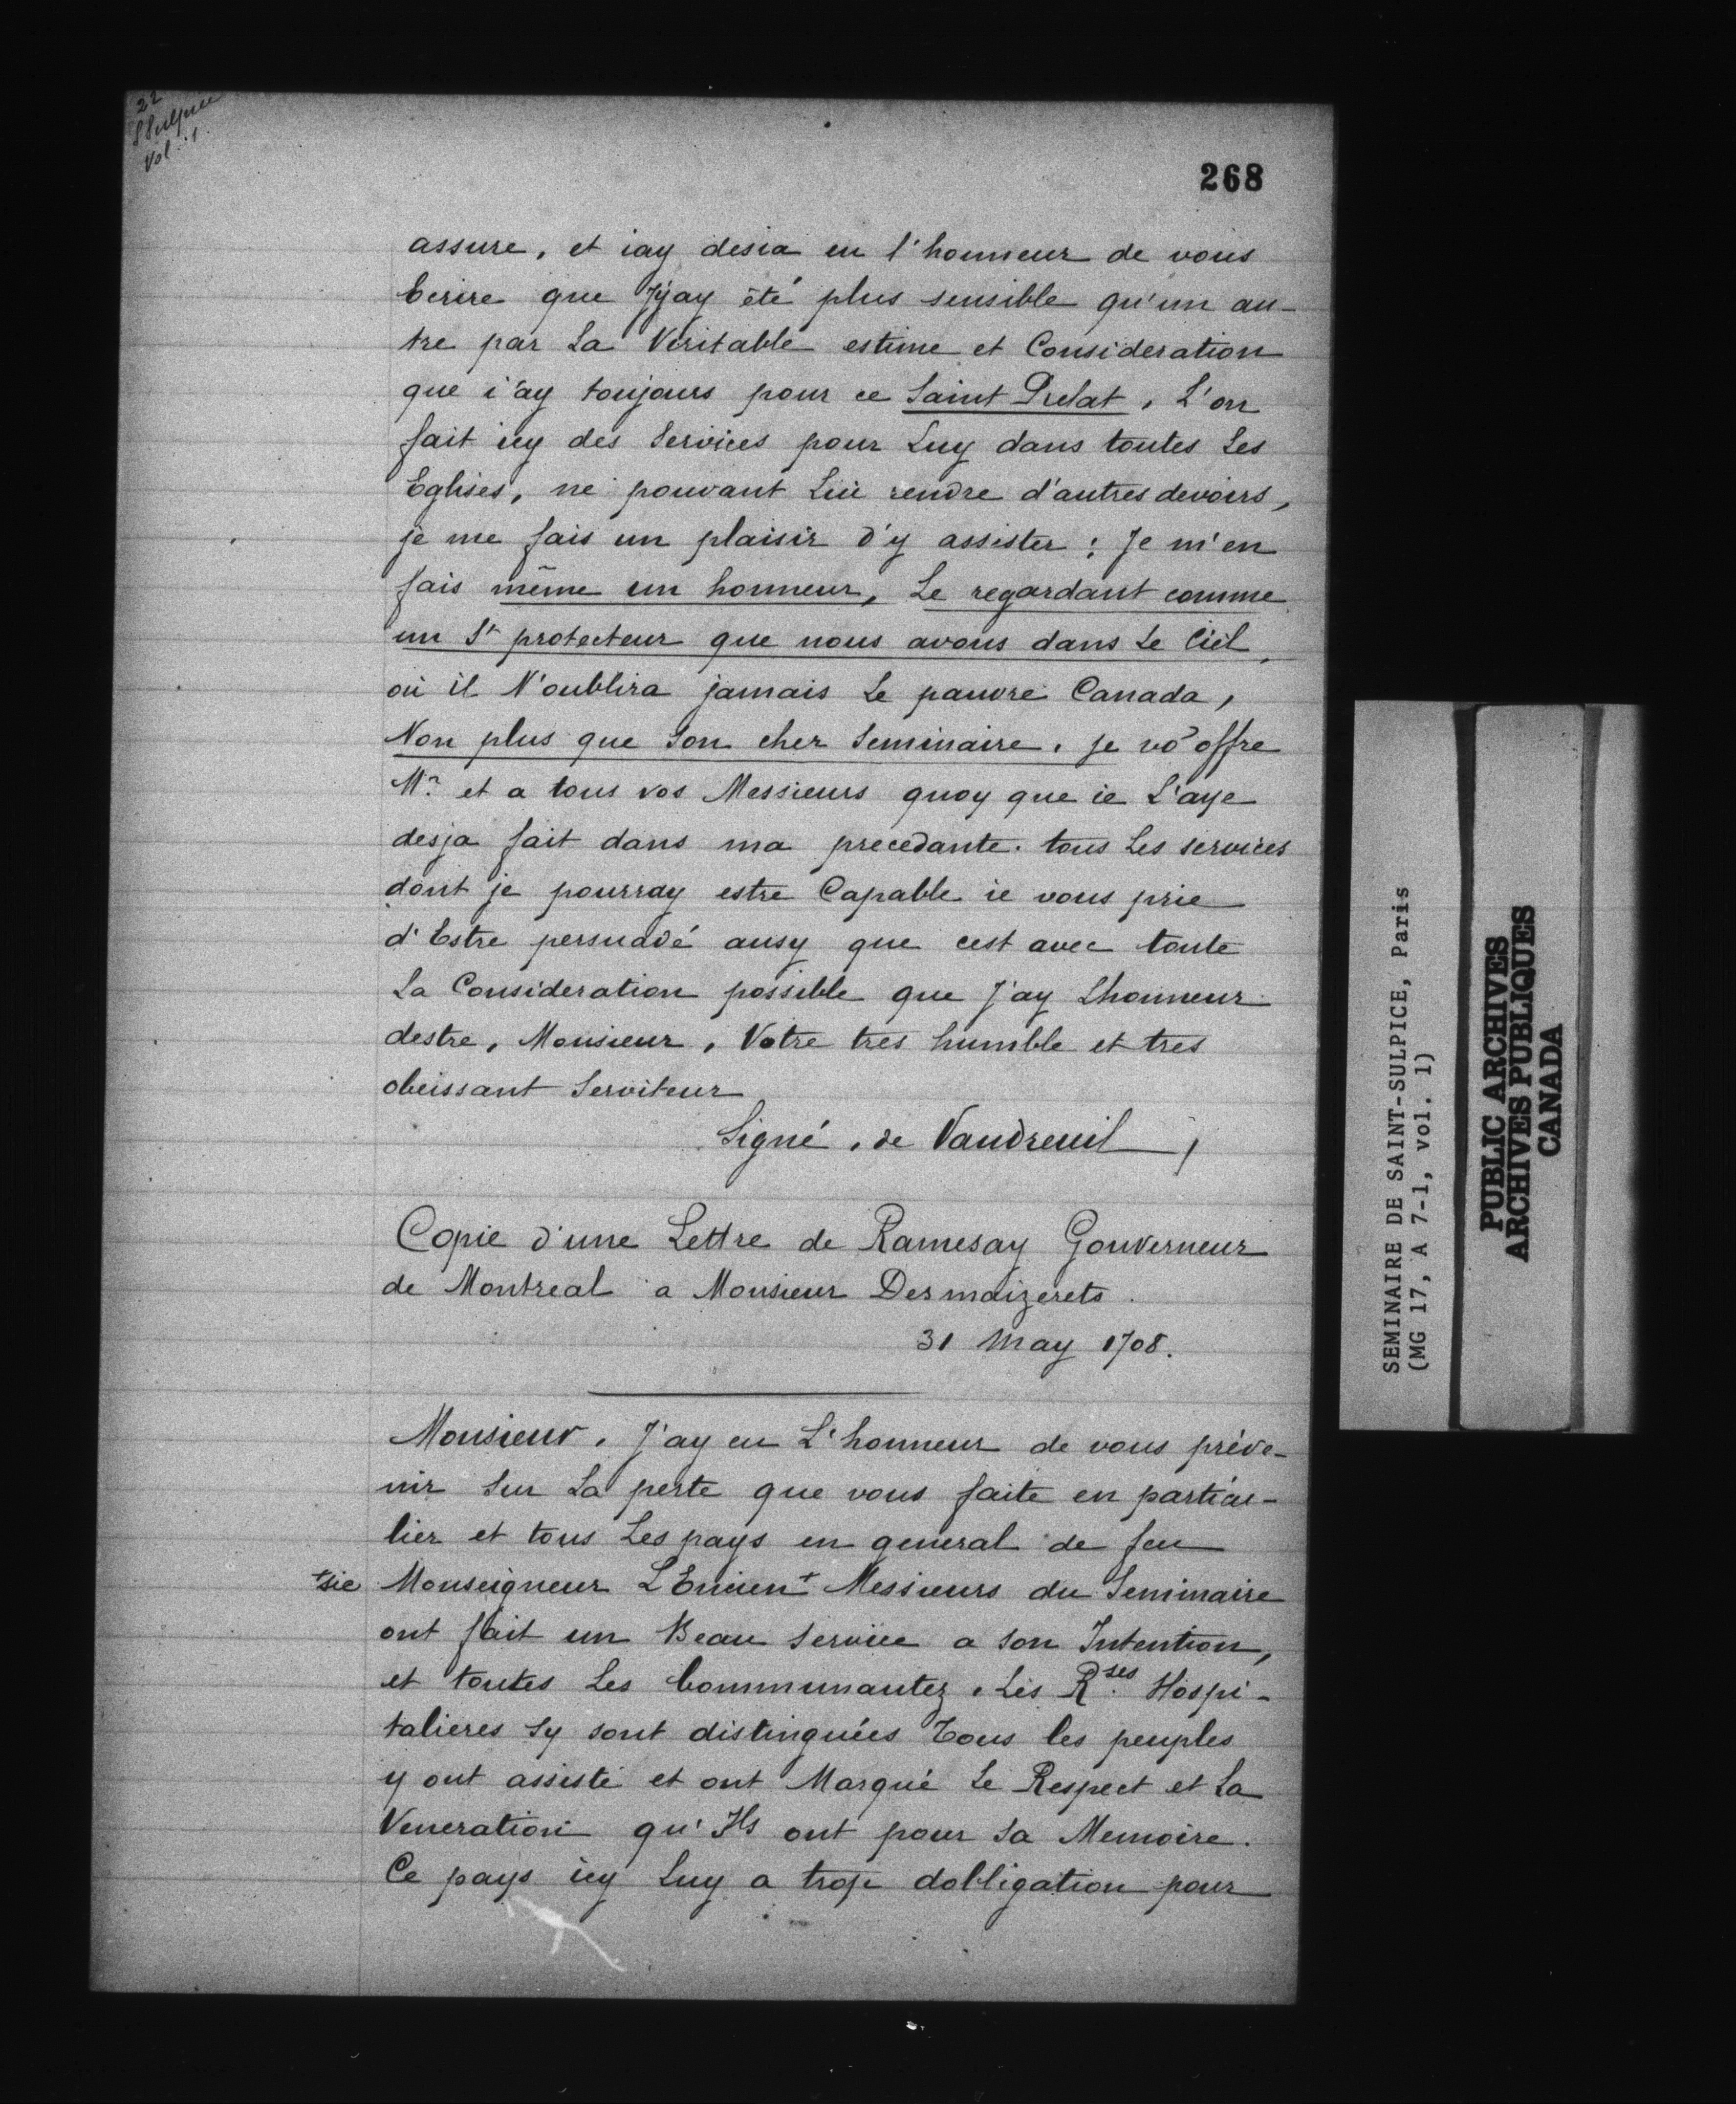 22
SSulpice
Vol. 1.
268
assure, et iay desia eu l'honneur de vous
Ecrire que J'y ay été plus sensible qu'un au-
tre par La Veritable estime et Consideration
que i'ay toujours pour ce Saint Prelat, L'on
fait icy des Services pour Luy dans toutes Les
Eglises, ne pouvant Lui rendre d'autres devoirs,
je me fais un plaisir d'y assister ; Je m'en
fais même un honneur, Le regardant comme
un St protecteur que nous avons dans Le Ciel,
où il N'oublira jamais Le pauvre Canada,
Non plus que Son cher Seminaire. je vo͂ offre
Mr. et a tous vos Messieurs quoy que ie L'aye
desja fait dans ma precedante. tous Les services
dont je pourray estre Capable ie vous prie
d'Estre persuadé ausy que cest avec toute
La Consideration possible que J'ay Lhonneur
destre, Monsieur, Votre tres humble et tres
obeissant Serviteur
Signé, de Vaudreuil,
Copie d'une Lettre de Ramesay Gouverneur
de Montreal a Monsieur Desmaizerets.
31 May 1708.
Monsieur, J'ay eu L'honneur de vous préve-
nir Sur La perte que vous faite en particu-
lier et tous Les pays en general de feu
+sic Monseigneur L'Encien+ Messieurs du Seminaire
ont fait un Beau Service a Son Intention,
et toutes Les Communautez, Les R.ses Hospi-
talieres Sy sont distinguées Tous les peuples
y ont assisté et ont Marqué Le Respect et La
Veneration qu'Ils ont pour Sa Memoire.
Ce pays icy Luy a trop dobligation pour
SEMINAIRE DE SAINT-SULPICE, Paris
(MG 17, A 7-1, vol. 1)
PUBLIC ARCHIVES
ARCHIVES PUBLIQUES
CANADA